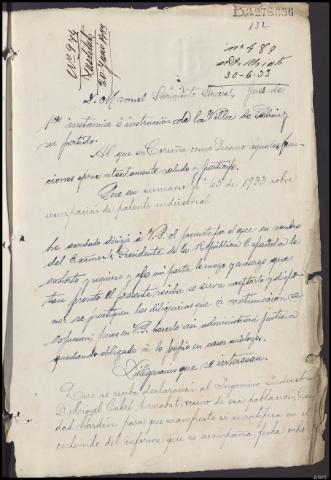 D.3278,636
132
nº 480
30-6-33
D. Manuel Juez de
1ª instancia é instrucción de la Villa de
su partido.
Al que en Coruña como Decano iguales fun-
ciones ejerce atentamente saludo y participo.
Que en sumario nº 65 de 1933 sobre
usurpación de patente industrial
he acordado dirigir á V.S. el presente por el que en nombre
del Excmo. Sr. Presidente de la República Española le
exhorto y requiero y de mi parte le ruego y encargo que
tan pronto el presente reciba se sirva aceptarlo y dispo-
ner se practiquen las diligencias que á continuación se
expresan; pues en V.S. hacerlo así administrará justicia
quedando obligado á lo propio en casos análogos.
Diligencias que se interesan.
Que se reciba declaración al Ingeniero Industrial
D. Miguel vecino de esa población,
para que manifieste si se ratifica en el
contenido del informe que se acompaña, fecha ocho